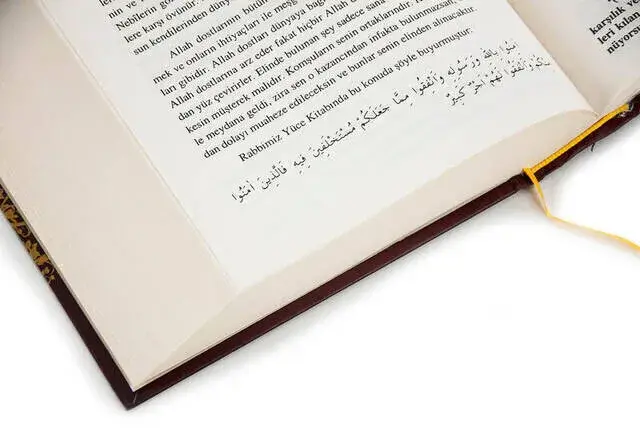 nin ve
Nebîlerin gör
lere karşı övünür.
san kendilerinden
Allah dostlarının bütün
mek ve onların ihtiyaçları ile meşg
ları gibidir. Allah dostları dünyaya bağ
Allah dostlarına arz eder fakat hiçbir Allah d
dan yüz çevirirler. Elinde bulunan şey sadece sana
kesin müşterek malıdır. Komşuların senin ortaklarındır. H
le meydana geldi, zira sen o kazancından infakta bulunmazsan,
dan dolayı muaheze edileceksin ve bunlar senin elinden alınacaktır.
Rabbimiz Yüce Kitabında bu konuda şöyle buyurmuştur.
اٰمِنُوا بِاللّٰهِ وَرَسُولِهِ وَأَنْفِقُوا مِمَّا جَعَلَكُمْ مُسْتَخْلَفِينَ فِيهِ فَالَّذِينَ اٰمَنُوا
مِنْكُمْ وَأَنْفَقُوا لَهُمْ أَجْرٌ كَبِيرٌ
karşılık v
leri kılan
nüyorsu